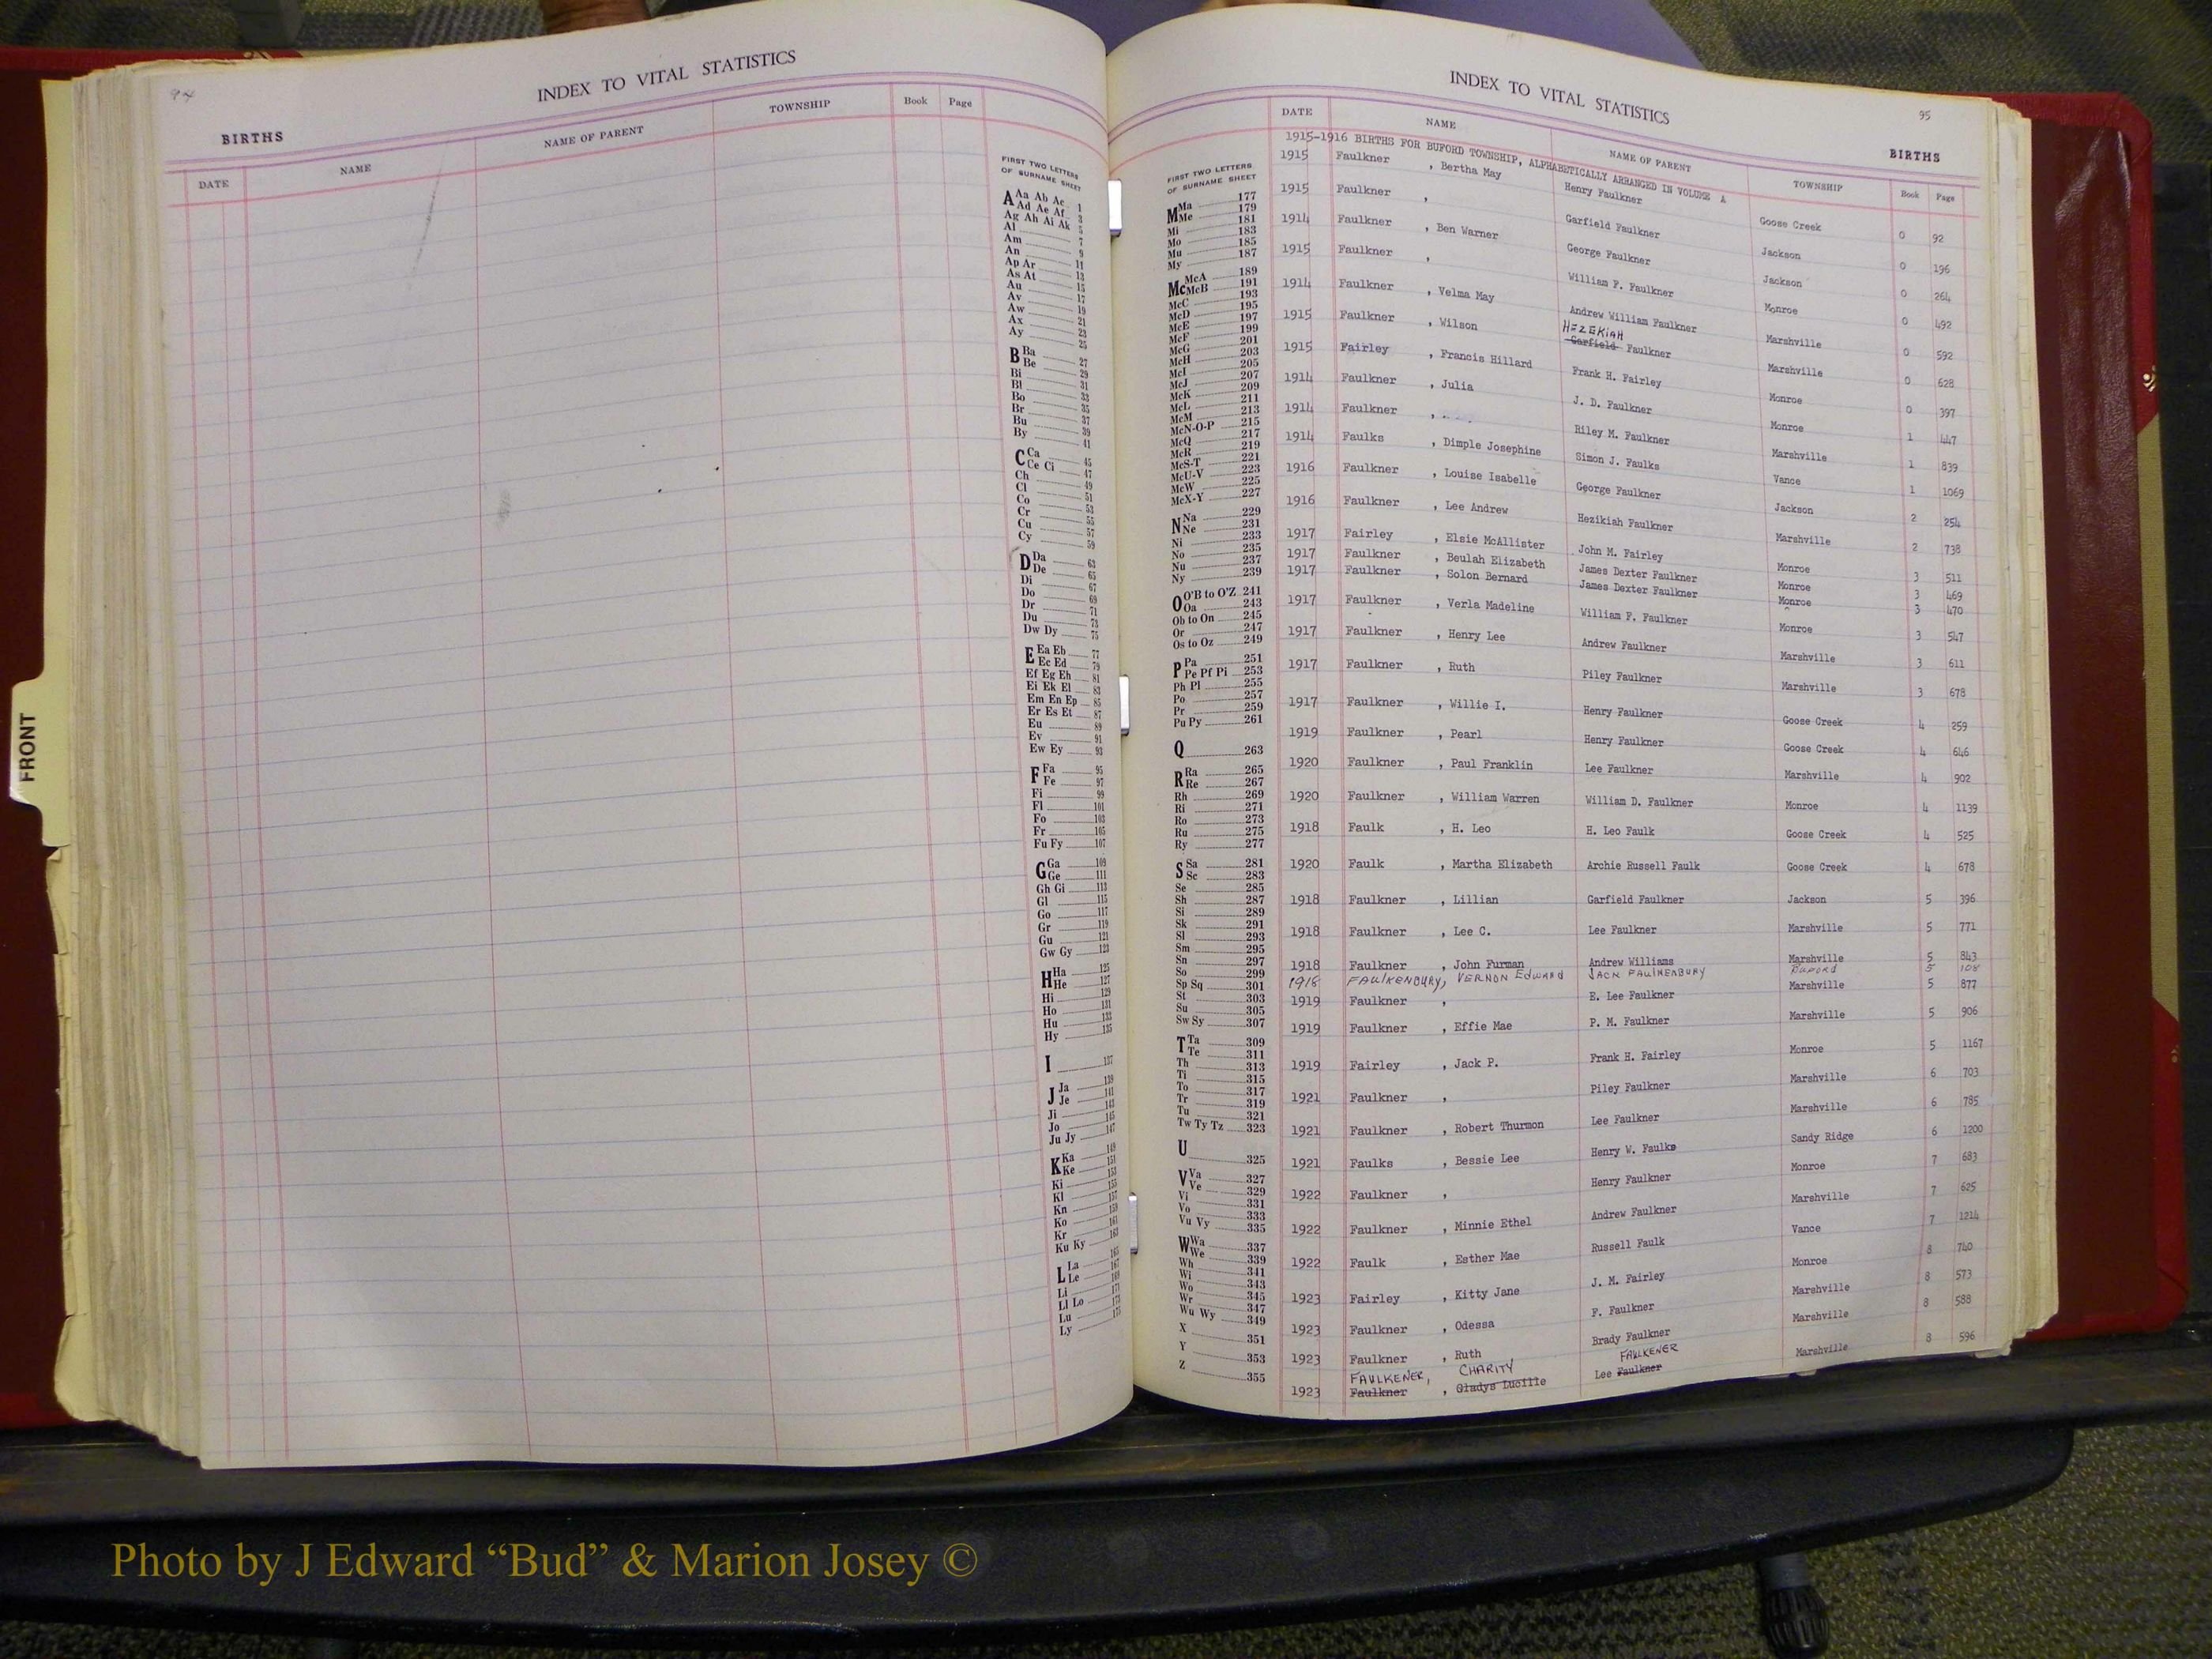 94
INDEX TO VITAL STATISTICS
BIRTHS
DATE NAME NAME OF PARENT TOWNSHIP Book Page
FIRST TWO LETTERS
OF SURNAME SHEET
A Aa Ab Ac 1
Ad Ae Af 3
Ag Ah Ai Ak 5
Al 7
Am 9
An 11
Ap Ar 13
As At 15
Au 17
Av 19
Aw 21
Ax 23
Ay 25
B Ba 27
Be 29
Bi 31
Bl 33
Bo 35
Br 37
Bu 39
By 41
C Ca 45
Ce Ci 47
Ch 49
Cl 51
Co 53
Cr 55
Cu 57
Cy 59
D Da 63
De 65
Di 67
Do 69
Dr 71
Du 73
Dw Dy 75
E Ea Eb 77
Ec Ed 79
Ef Eg Eh 81
Ei Ek El 83
Em En Ep 85
Er Es Et 87
Eu 89
Ev 91
Ew Ey 93
F Fa 95
Fe 97
Fi 99
Fl 101
Fo 103
Fr 105
Fu Fy 107
G Ga 109
Ge 111
Gh Gi 113
Gl 115
Go 117
Gr 119
Gu 121
Gw Gy 123
H Ha 125
He 127
Hi 129
Ho 131
Hu 133
Hy 135
I 137
J Ja 139
Je 141
Ji 143
Jo 145
Ju Jy 147
K Ka 149
Ke 151
Ki 153
Kl 155
Kn 157
Ko 159
Kr 161
Ku Ky 163
L La 165
Le 167
Li 169
Ll Lo 171
Lu 173
Ly 175
FRONT
INDEX TO VITAL STATISTICS
95
BIRTHS
DATE NAME NAME OF PARENT TOWNSHIP Book Page
FIRST TWO LETTERS
OF SURNAME SHEET
M Ma 177
Me 179
Mi 181
Mo 183
Mu 185
My 187
Mc McA 189
McB 191
McC 193
McD 195
McE 197
McF 199
McG 201
McH 203
McI 205
McJ 207
McK 209
McL 211
McM 213
McN-O-P 215
McQ 217
McR 219
McS-T 221
McU-V 223
McW 225
McX-Y 227
N Na 229
Ne 231
Ni 233
No 235
Nu 237
Ny 239
O O'B to O'Z 241
Oa 243
Ob to On 245
Or 247
Os to Oz 249
P Pa 251
Pe Pf Pi 253
Ph Pl 255
Po 257
Pr 259
Pu Py 261
Q 263
R Ra 265
Re 267
Rh 269
Ri 271
Ro 273
Ru 275
Ry 277
S Sa 281
Sc 283
Se 285
Sh 287
Si 289
Sk 291
Sl 293
Sm 295
Sn 297
So 299
Sp Sq 301
St 303
Su 305
Sw Sy 307
T Ta 309
Te 311
Th 313
Ti 315
To 317
Tr 319
Tu 321
Tw Ty Tz 323
U 325
V Va 327
Ve 329
Vi 331
Vo 333
Vu Vy 335
W Wa 337
We 339
Wh 341
Wi 343
Wo 345
Wr 347
Wu Wy 349
X 351
Y 353
Z 355
1915-1916 BIRTHS FOR BUFORD TOWNSHIP, ALPHABETICALLY ARRANGED IN VOLUME A
1915 Faulkner , Bertha May Henry Faulkner Goose Creek 0 92
1915 Faulkner , Garfield Faulkner Jackson 0 196
1914 Faulkner , Ben Warner George Faulkner Jackson 0 264
1915 Faulkner , William F. Faulkner Monroe 0 492
1914 Faulkner , Velma May Andrew William Faulkner Marshville 0 592
HEZEKIAH
1915 Faulkner , Wilson Garfield Faulkner Marshville 0 628
1915 Fairley , Francis Hillard Frank H. Fairley Monroe 0 397
1914 Faulkner , Julia J. D. Faulkner Monroe 1 447
1914 Faulkner , Riley M. Faulkner Marshville 1 839
1914 Faulks , Dimple Josephine Simon J. Faulks Vance 1 1069
1916 Faulkner , Louise Isabelle George Faulkner Jackson 2 254
1916 Faulkner , Lee Andrew Hezikiah Faulkner Marshville 2 738
1917 Fairley , Elsie McAllister John M. Fairley Monroe 3 511
1917 Faulkner , Beulah Elizabeth James Dexter Faulkner Monroe 3 469
1917 Faulkner , Solon Bernard James Dexter Faulkner Monroe 3 470
1917 Faulkner , Verla Madeline William F. Faulkner Monroe 3 547
1917 Faulkner , Henry Lee Andrew Faulkner Marshville 3 611
1917 Faulkner , Ruth Piley Faulkner Marshville 3 678
1917 Faulkner , Willie I. Henry Faulkner Goose Creek 4 259
1919 Faulkner , Pearl Henry Faulkner Goose Creek 4 646
1920 Faulkner , Paul Franklin Lee Faulkner Marshville 4 902
1920 Faulkner , William Warren William D. Faulkner Monroe 4 1139
1918 Faulk , H. Leo H. Leo Faulk Goose Creek 4 525
1920 Faulk , Martha Elizabeth Archie Russell Faulk Goose Creek 4 678
1918 Faulkner , Lillian Garfield Faulkner Jackson 5 396
1918 Faulkner , Lee C. Lee Faulkner Marshville 5 771
1918 Faulkner , John Furman Andrew Williams Marshville 5 843
1918 FAULKENBURY, VERNON EDWARD JACK FAULKENBURY Buford 5 108
1919 Faulkner , E. Lee Faulkner Marshville 5 877
1919 Faulkner , Effie Mae P. M. Faulkner Marshville 5 906
1919 Fairley , Jack P. Frank H. Fairley Monroe 5 1167
1921 Faulkner , Piley Faulkner Marshville 6 703
1921 Faulkner , Robert Thurmon Lee Faulkner Marshville 6 785
1921 Faulks , Bessie Lee Henry W. Faulks Sandy Ridge 6 1200
1922 Faulkner , Henry Faulkner Monroe 7 683
1922 Faulkner , Minnie Ethel Andrew Faulkner Marshville 7 625
1922 Faulk , Esther Mae Russell Faulk Vance 7 1214
1923 Fairley , Kitty Jane J. M. Fairley Monroe 8 740
1923 Faulkner , Odessa F. Faulkner Marshville 8 573
1923 Faulkner , Ruth Brady Faulkner Marshville 8 588
FAULKENER, CHARITY FAULKENER
1923 Faulkner , Gladys Lucille Lee Faulkner Marshville 8 596
Photo by J Edward “Bud” & Marion Josey ©